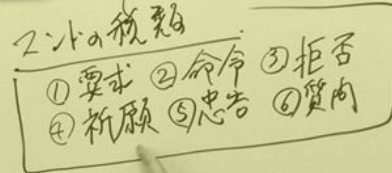 マンドの種類
① 要求 ② 命令 ③ 拒否
④ 祈願 ⑤ 忠告 ⑥ 質問